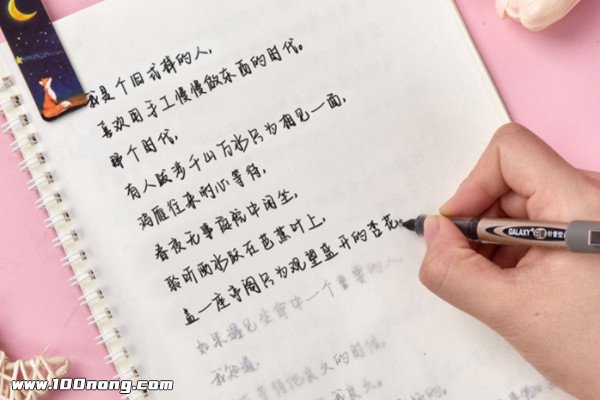 我是个旧式样的人，
喜欢用手工慢慢做东西的时代。
那个时代，
有人跋涉千山万水只为相见一面，
鸿雁往来的心等待，
春夜无事庭院中闲坐，
聆听雨水跃在芭蕉叶上，
盖一座亭阁只为观望盛开的杏花。
如果遇见生命中一个重要的人
我知道，
等待他良久的时候，
良久。
的。
GALAXY
www.100nong.com